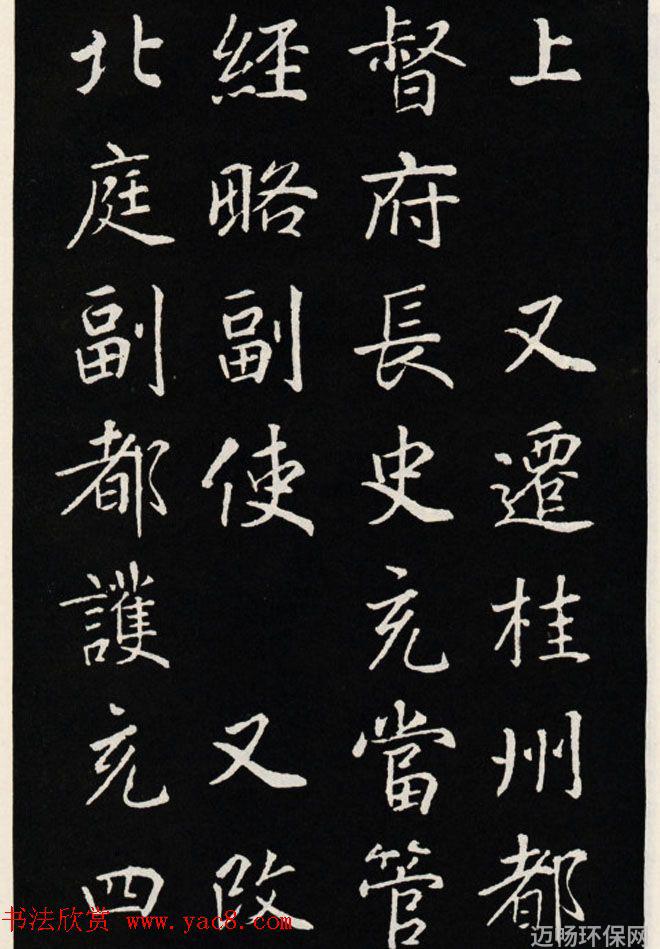 上 又遷桂州都
督府長史充當管
經略副使 又改
北庭副都護充四
书法欣赏 www.yac8.com
迈畅环保网